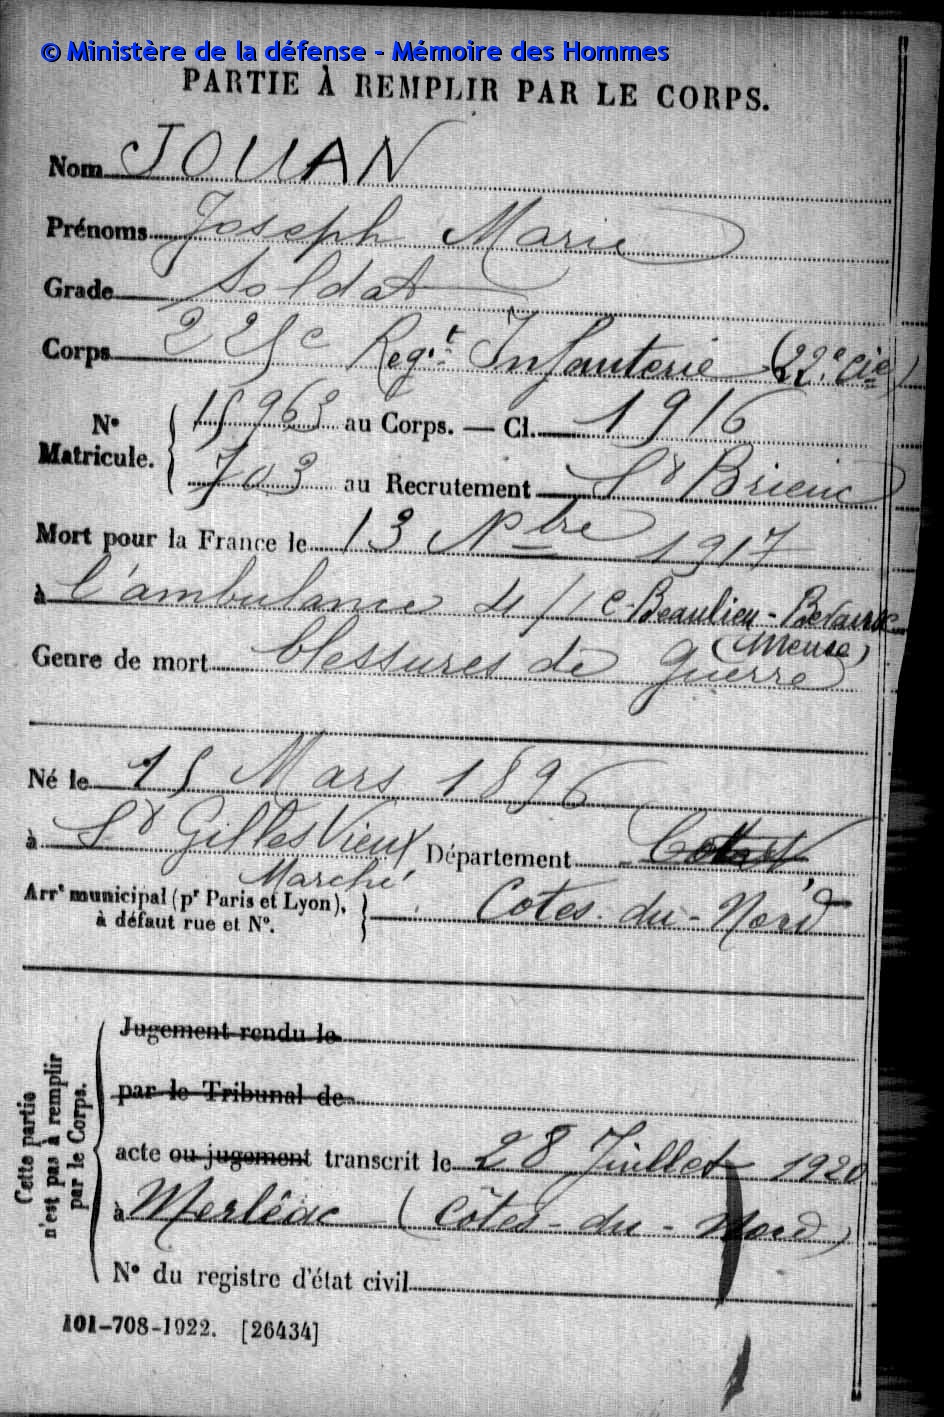 © Ministère de la défense - Mémoire des Hommes
PARTIE À REMPLIR PAR LE CORPS.
Nom JOUAN
Prénoms Joseph Marie
Grade Soldat
Corps 225e Regt Infanterie (22e Cie)
N° Matricule. 15963 au Corps. — Cl. 1916
703 au Recrutement St Brieuc
Mort pour la France le 13 Nbre 1917
à l'ambulance 4/1 e Beaulieu -
(Meuse)
Genre de mort blessures de guerre
Né le 15 Mars 1896
à St Gilles Vieux Département
Marché
Arrt municipal (pr Paris et Lyon), à défaut rue et N°. Cotes-du-Nord
Cette partie n'est pas à remplir par le Corps.
Jugement rendu le
par le Tribunal de
acte ou jugement transcrit le 28 Juillet 1920
à Merléac (Côtes-du-Nord)
N° du registre d'état civil
101-708-1922. [26434]